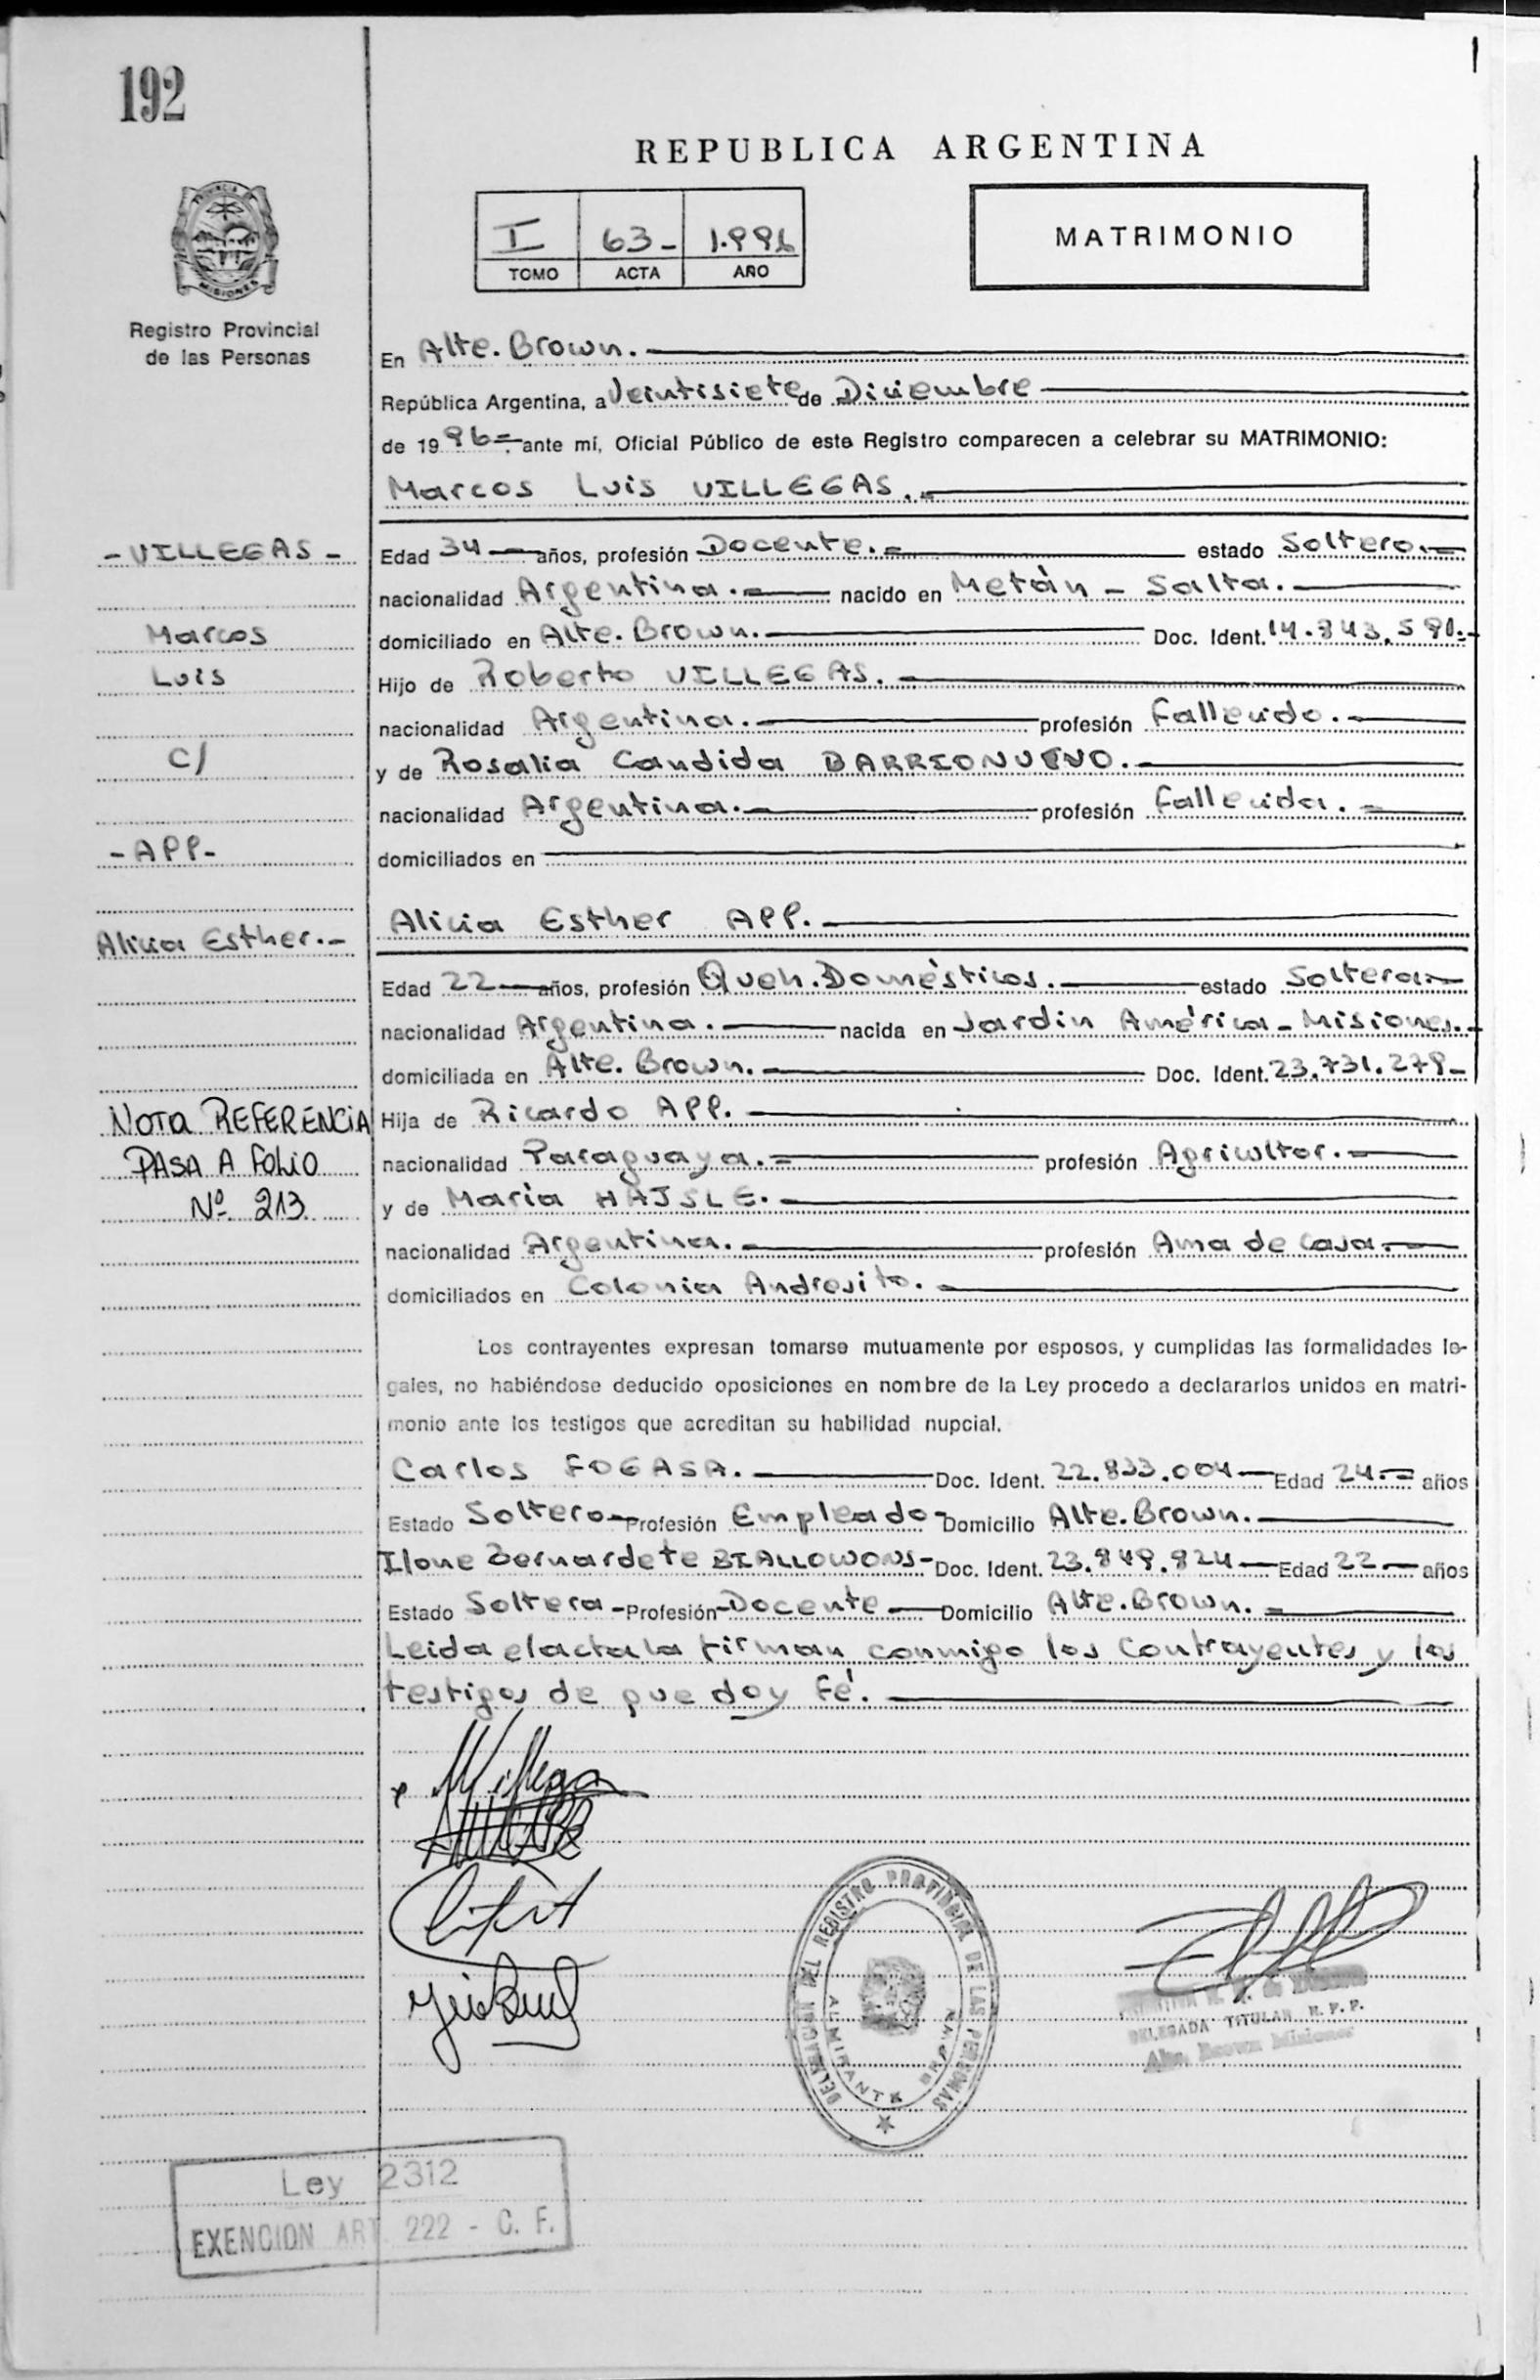 192
REPUBLICA ARGENTINA
PROVINCIA DE MISIONES
I 63- 1.996
TOMO ACTA AÑO
MATRIMONIO
Registro Provincial
de las Personas
En Alte. Brown.
República Argentina, a Veintisiete de Diciembre
de 1996= ante mí, Oficial Público de este Registro comparecen a celebrar su MATRIMONIO:
Marcos Luis VILLEGAS.
-VILLEGAS-
Marcos
Luis
C/
-APP-
Alicia Esther.-
NOTA REFERENCIA
PASA A FOLIO
Nº 213
Edad 34 años, profesión Docente.= estado Soltero.=
nacionalidad Argentina.= nacido en Metán - Salta.
domiciliado en Alte. Brown. Doc. Ident.
Hijo de Roberto VILLEGAS.
nacionalidad Argentina. profesión fallecido.-
y de Rosalia Candida BARRIONUEVO.
nacionalidad Argentina.- profesión fallecida.=
domiciliados en
Alicia Esther APP.
Edad 22 años, profesión Queh. Domésticos. estado Soltera=
nacionalidad Argentina. nacida en Jardin América - Misiones.-
domiciliada en Alte. Brown. Doc. Ident. 23.731.279-
Hija de Ricardo APP.
nacionalidad Paraguaya.= profesión Agricultor.=
y de Maria HAJSLE.
nacionalidad Argentina. profesión Ama de Casa.
domiciliados en Colonia Andresito.
Los contrayentes expresan tomarse mutuamente por esposos, y cumplidas las formalidades le-
gales, no habiéndose deducido oposiciones en nombre de la Ley procedo a declararlos unidos en matri-
monio ante los testigos que acreditan su habilidad nupcial.
Carlos FOGASA. Doc. Ident. 22.833.004 Edad 24.= años
Estado Soltero Profesión Empleado- Domicilio Alte. Brown.
Ilone Bernardete BIALLOWONS- Doc. Ident. 23.849.824 Edad 22 años
Estado Soltera - Profesión Docente Domicilio Alte. Brown.
Leida el acta la firman conmigo los contrayentes y los
testigos de que doy fé.
DELEGACION DEL REGISTRO PROVINCIAL DE LAS PERSONAS
ALMIRANTE BROWN
DELEGADA TITULAR R. P. P.
Alte. Brown Misiones
Ley 2312
EXENCION ART. 222 - C. F.